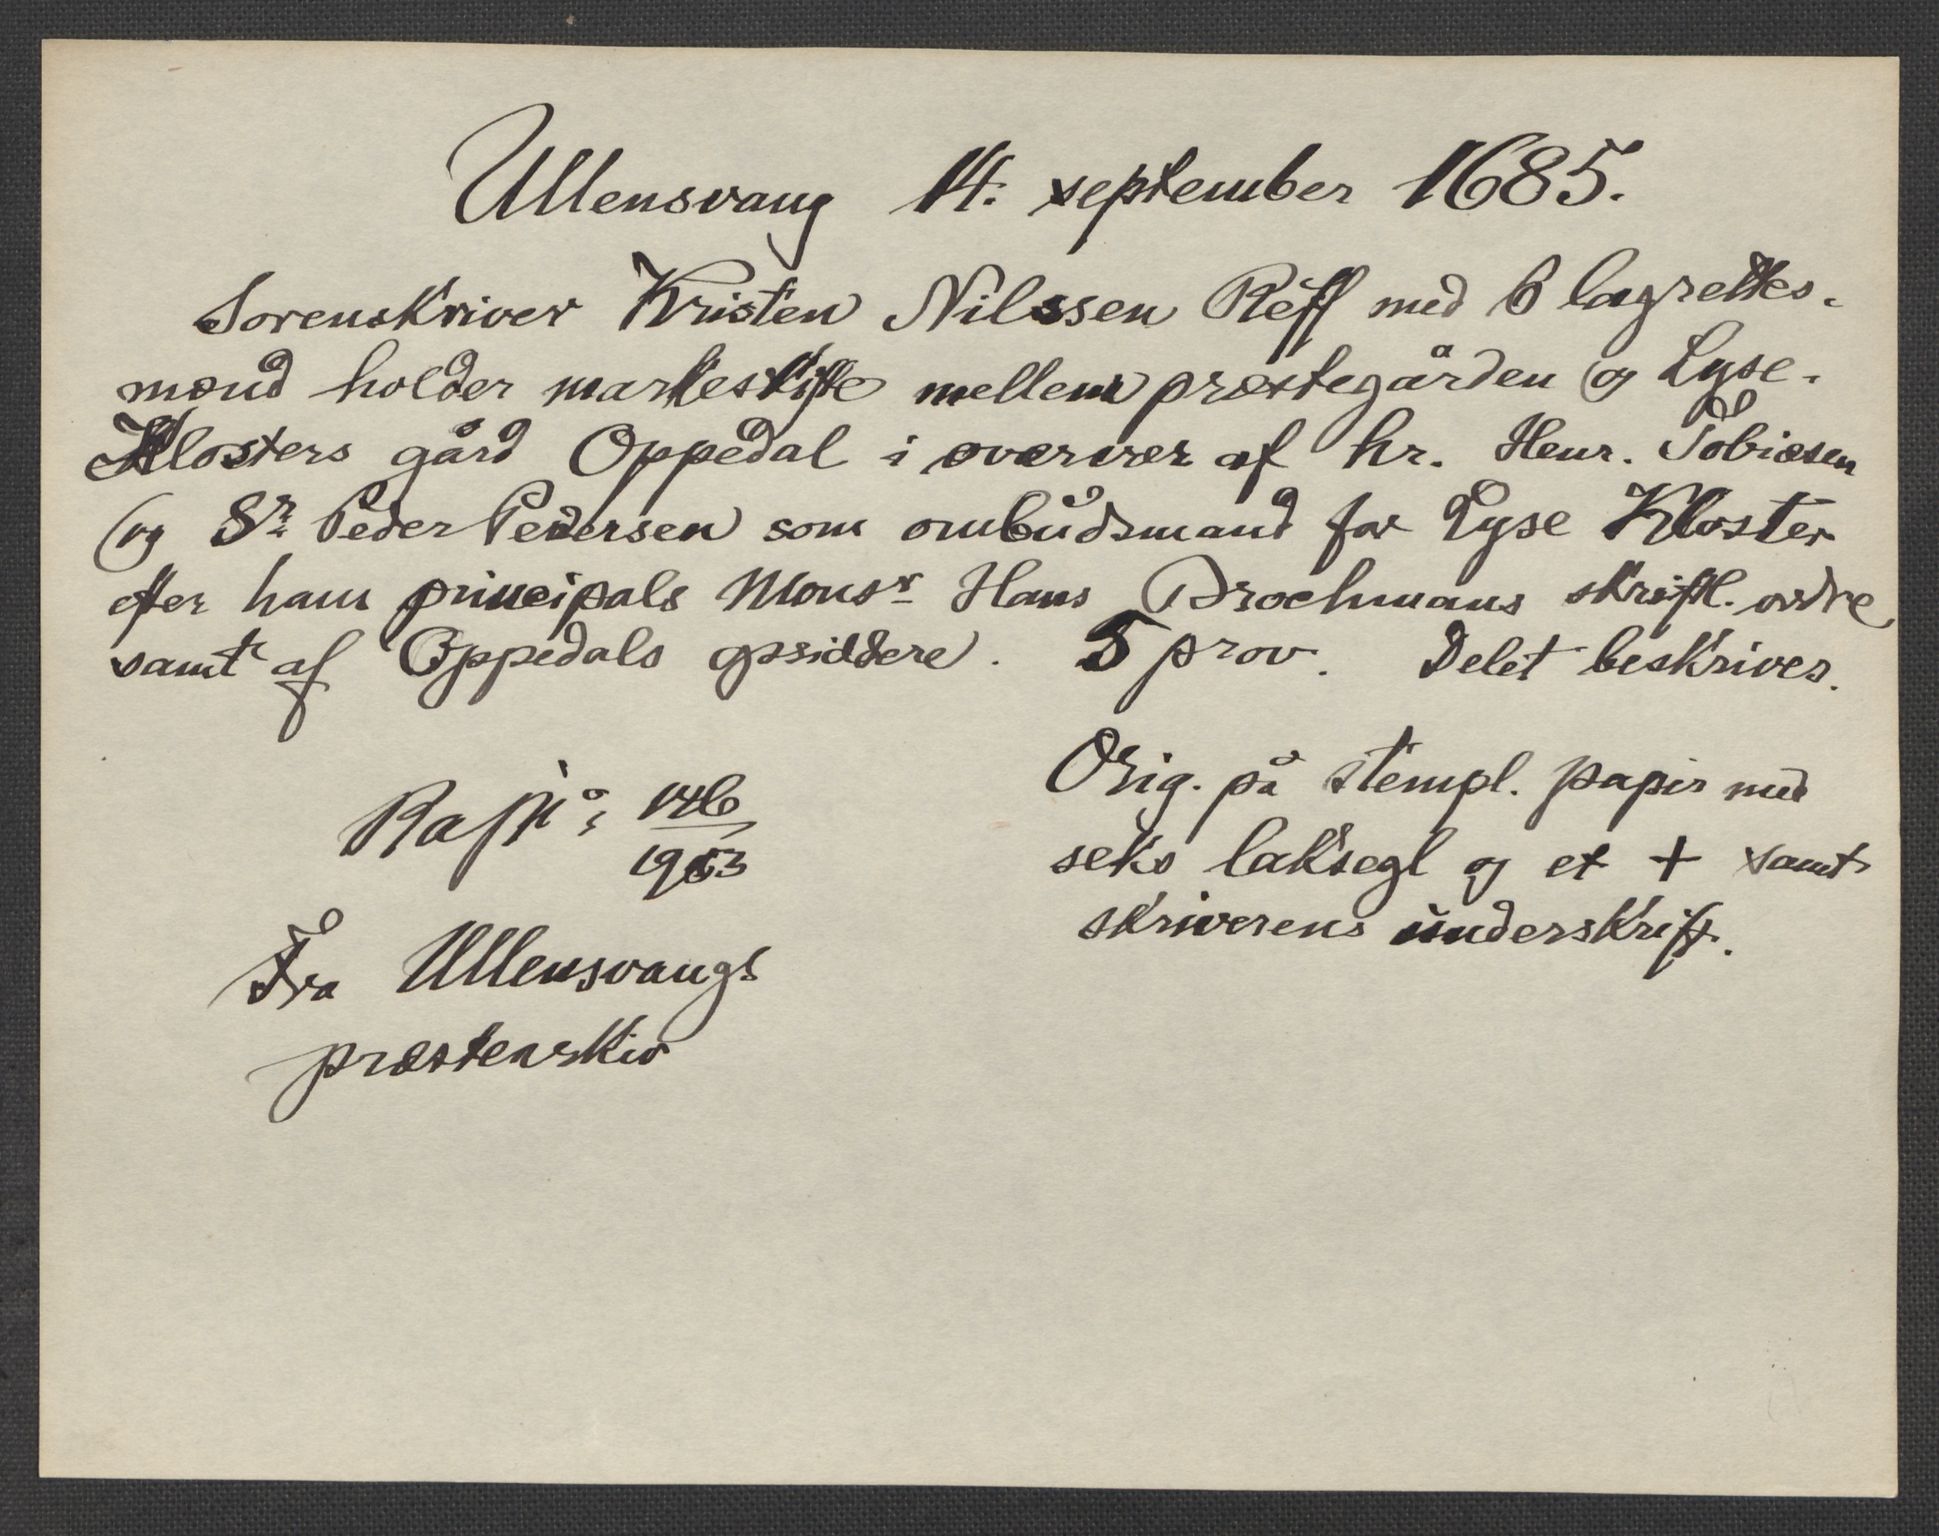 Ullensvang 14. september 1685.
Sorenskriver Kristen Nilssen Reff med 6 lagrettes-
mænd holder markeskifte mellem præstegården og Lyse-
Klosters gård Oppedal i overvær af hr. Henr. Tobiæsen
og Sr. Peder Pedersen som ombudsmand for Lyse Kloster
efter hans principals Monsr Hans Brochmans skriftl. ordre
samt af Oppedals opsiddere. 5 prov. Delet beskrives.
Orig. på stempl. papir med
seks laksegl og et + samt
skriverens underskrift.
146
1903
Fra Ullensvangs
præstearkiv